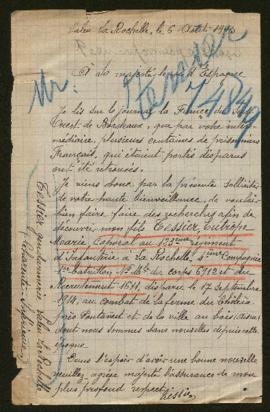 La Rochelle, le 6
A sa majesté le roi d'Espagne
Mr. Tessier
74849
Je lis sur le journal la France de
Ouest de Bordeaux, que par votre inter-
médiaire, plusieurs centaines de prisonniers
Français, qui étaient portés disparus
ont été
Je viens donc par la présente solliciter
de votre haute bienveillance, de vouloir
bien faire faire des recherches afin de
découvrir mon fils Tessier
Marie Caporal au 123ème régiment
d'Infanterie à La Rochelle, Compagnie
1er bataillon No Mle du corps 6912 et du
Recrutement disparu le 17 Septembre
1914, au combat de la ferme du
près et de la ville au bois
dont nous sommes sans nouvelles depuis cette
époque.
Dans l'espoir d'avoir une bonne nouvelle
veuillez, agréer majesté l'assurance de mon
plus profond respect
Tessier
Tessier gendarmerie La Rochelle
Charente Inférieure